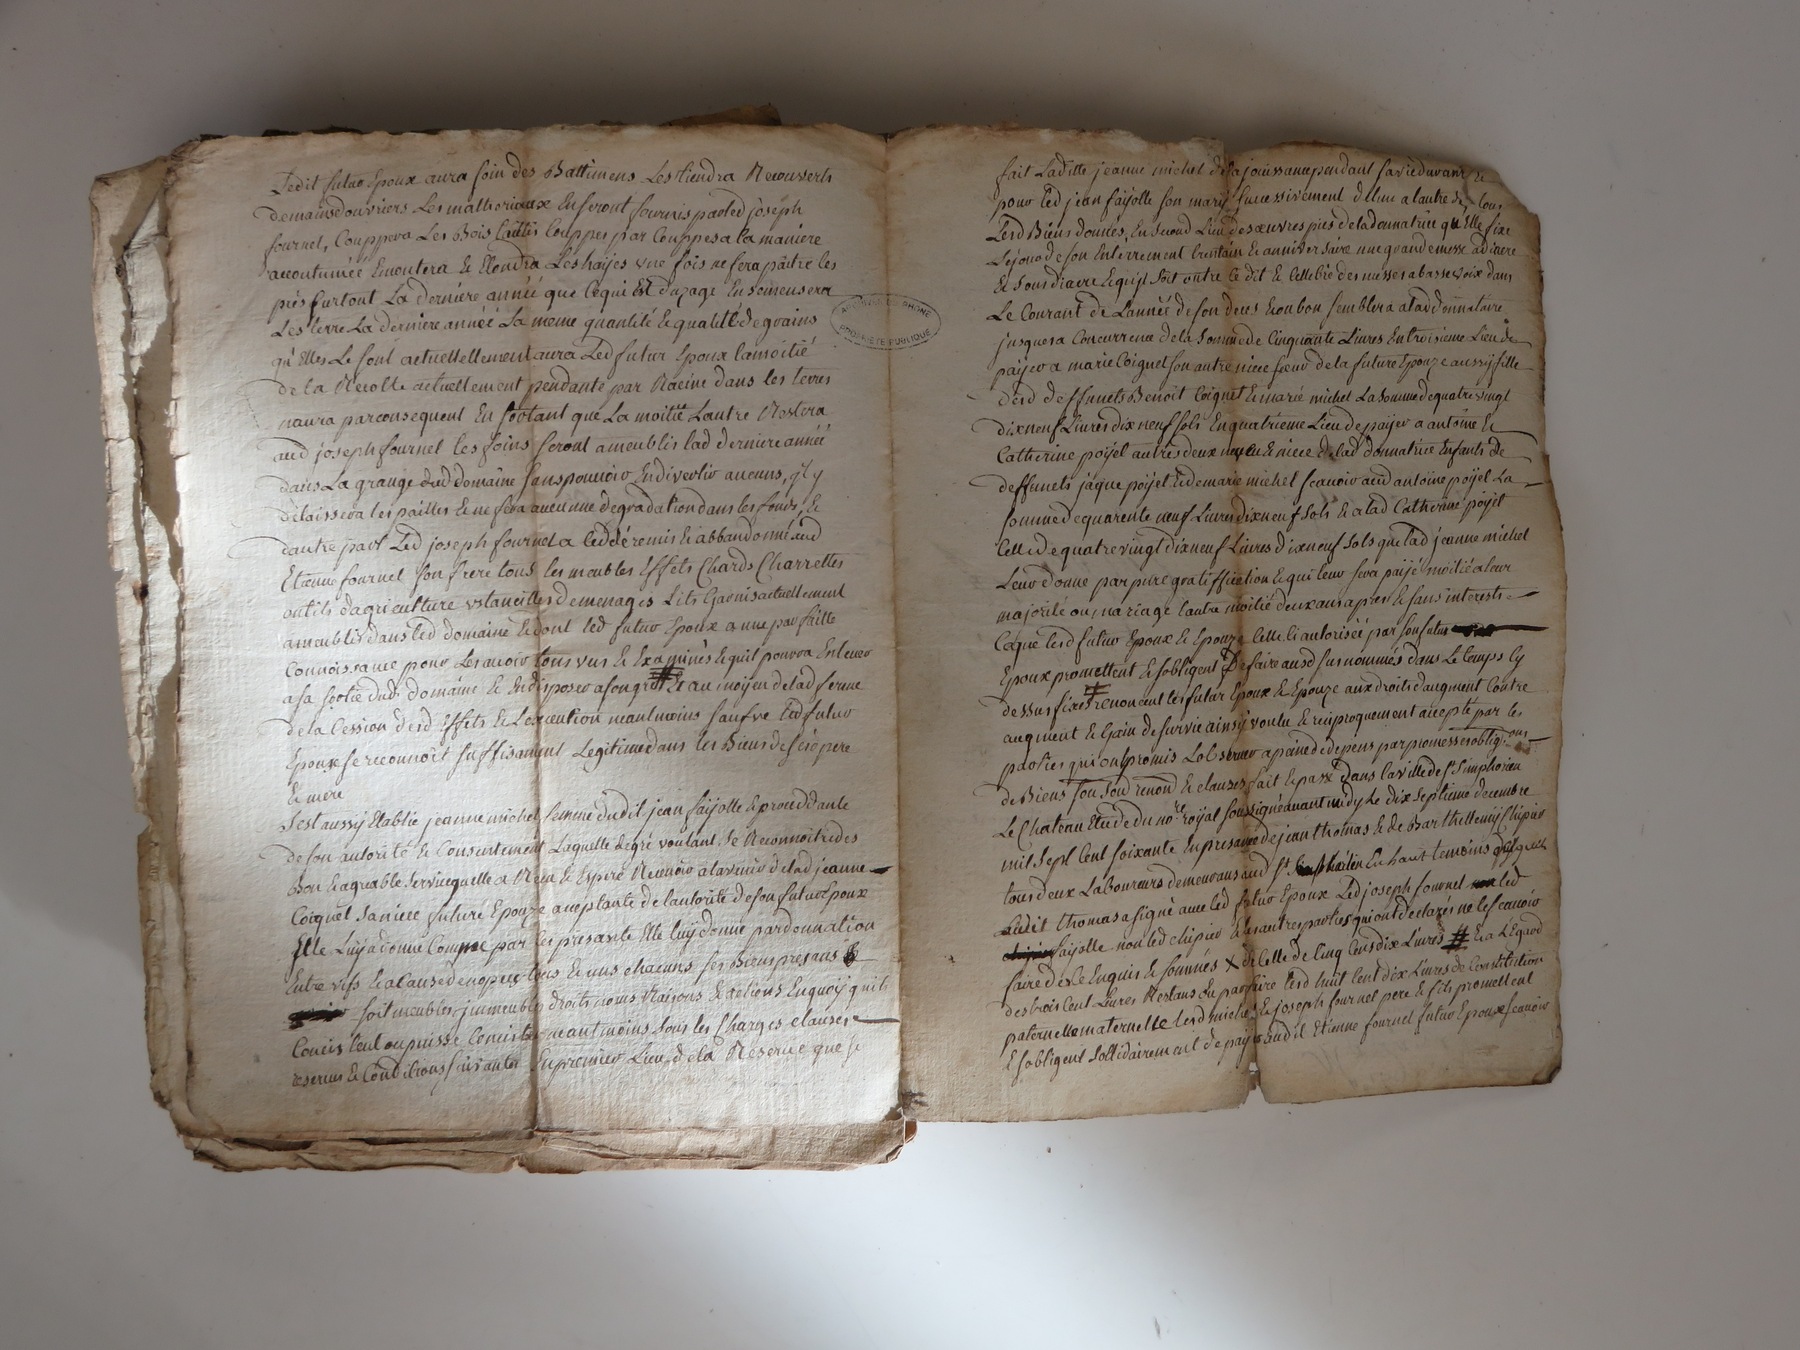 Ledit futur Epoux aura soin des Battimens Les tiendra Recouverts
demains douvriers Les matteriaux En seront fournis par led joseph
fournel, Couppera Les Bois taillis Couppes par Couppes a la maniere
accoutumée Emontera & Elondra Les haijes une fois ne fera paitre les
prés surtout La derniere année que Ce qui Est duzage Ensemensera
Les terre La derniere année La même quantité & qualité de grains
qu'Elles Le sont actuellellement aura Led futur Epoux la moitié
de la Recolte actuellement pendante par Racine dans les terres
naura par consequent En sortant que La moitié Lautre Restera
aud joseph fournel les foins seront ameublis lad derniere année
dans La grange dud domaine sans pouvoir En divertir aucuns, il y
delaissera les pailles & ne fera aucunne degradation dans les fonds, &
dautre part Led joseph fournel a cedé remis & abbandonné aud
Etienne fournel son frere tous les meubles Effets Chards Charrettes
outils dagriculture ustancilles de menages Lits Garnis actuellement
ameublis dans led domaine & dont led futur Epoux a une parfaitte
Connoissance pour Les avoir tous vus & Examinés & quil pourra Enlever
a sa sortie dud domaine & En disposer a son gré # & au moyen de lad ferme
de la Cession desd Effets & Lexecution neantmoins sauf ve Led futur
Epoux se reconnoit suffisament Legitimé dans les Biens de ses pere
& mere
Sest aussy Etablie jeanne michel femme dudit jean faijolle & procedante
de son autorité & Consentement Laquelle de gré voulant Se Reconnoitre des
Bon & agreable Service quelle a Reçu & Espere Recevoir a lavenir de lad jeanne
Coiquet Sa niece future Epouze aceptante de lautorité de son futur Epoux
Elle Luy a donné Comme par les presante Elle luy donne par donnation
Entre vifs & a cause de nopces tous & uns chacuns ses Biens presans &
soit meubles immeubles droits noms Raisons & actions En quoy quils
Concistent ou puisse Concister neantmoins sous les Charges clauses
reserves & Conditions suivantes En premier Lieu de la Reserve que se
fait Laditte jeanne michel de la jouissance pendant sa vie durant &
pour led jean faijolle son mary successivement dElune a lautre de tous
Lesd Biens donnés, En second Lieu des œuvres pies de la donnatrice qu'Elle fixe
Le jour de son Enterrement trentain & anniversaire une grande messe a diacre
& sous diacre & quil soit outre ce dit & Cellebré des messes a basse voix dans
Le Courant de Lannée de son deces & ou bon semblera a lad donnataire
jusques a Concurrence de la somme de Cinquante Livres En troisieme Lieu de
paijer a marie Coignet son autre niece sœur de la future Epouze aussy fille
desd deffunets Benoit Coignet & marie michel La Somme de quatre vingt
dix neuf Livres dix neuf sols En quatrieme Lieu de paijer a antoine &
Catherine poijet autres deux neveu & niece de lad donnatrice Enfants de
deffunets jaque poijet & de marie michel scavoir aud antoine poijet La
somme de quarente neuf Livres dix neuf sols & a lad Catherine poijet
Celle de quatre vingt dix neuf Livres dix neuf Sols que lad jeanne michel
Leur donne par pure gratiffication & qui leur sera paijé moitié a leur
majorité ou mariage lautre moitié deux ans apres & sans interests
Ce que lesd futur Epoux & Epouze Celle Ci autorisée par son futur
Epoux promettent & sobligent de faire aux sus nommés dans Le temps Cy
dessus fixé # renoncent les futur Epoux & Epouze aux droits daugment Contre
augment & Gain de survie ainsy voulu & reciproquement accepté par les
parties qui ont promis Lobserver a peine de depens par promesses obligons
de Biens som Soud renond & clauses fait & passé dans la ville de St Simphorien
Le Chateau Etude du nore roijal soussigné avant midy Le dix septieme decembre
mil sept Cent soixante En presance de jean thomas & de Barthellemy Chipier
tous deux Laboureurs demeurans aud St En haut temoins requis
Ledit thomas a signé avec led futur Epoux Led joseph fournel led
faijolle non led chipier & les autres parties qui ont declarés ne le scavoir
faire de ce Enquis & sommés X de Celle de Cinq Cens dix Livres # & a LEgard
des trois Cent Livres Restans du parfaire lesd huit Cent dix Livres de Constitution
paternelle maternelle lesd michel & joseph fournel pere & fils promettent
& sobligent sollidairement de paijer audit Etienne fournel futur Epoux scavoir
ARCHIVES DU RHONE
PROPRIETE PUBLIQUE